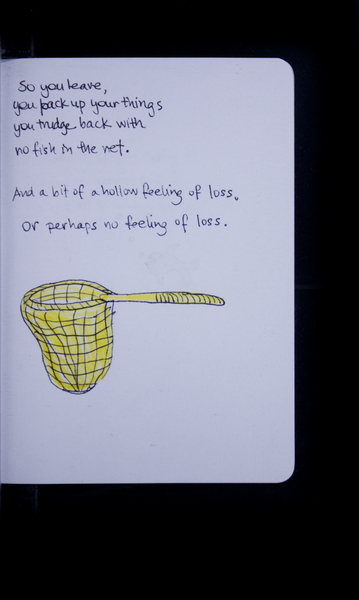 So you leave,
you pack up your things
you trudge back with
no fish in the net.
And a bit of a hollow feeling of loss.
Or perhaps no feeling of loss.